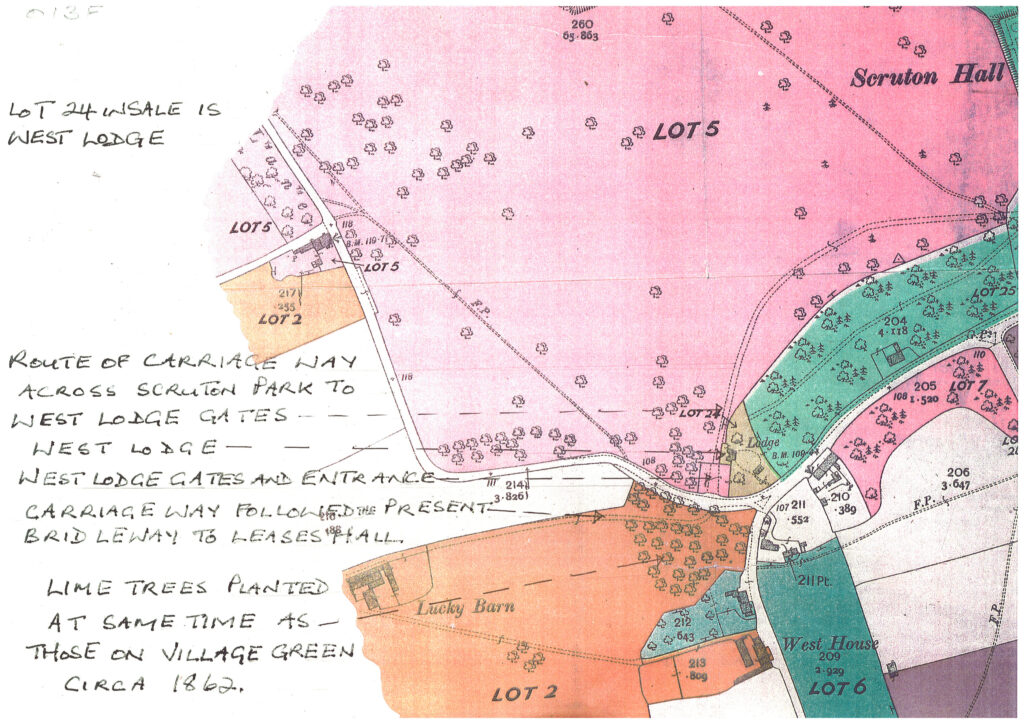 013F
LOT 24 IN SALE IS
WEST LODGE
ROUTE OF CARRIAGE WAY
ACROSS SCRUTON PARK TO
WEST LODGE GATES
WEST LODGE
WEST LODGE GATES AND ENTRANCE
CARRIAGE WAY FOLLOWED THE PRESENT
BRIDLEWAY TO LEASES HALL.
LIME TREES PLANTED
AT SAME TIME AS
THOSE ON VILLAGE GREEN
CIRCA 1862.
260
65.863
Scruton Hall
LOT 5
LOT 5
118
B.M. 119.71
LOT 5
217
.255
LOT 2
F.P.
118
204
4.118
LOT 25
G.P.
110
205
1.520
LOT 7
108
LOT 24
Lodge
B.M. 109.44
108
111
214
3.826
206
3.647
210
.389
211
.552
107
F.P.
F.P.
211 Pt.
Lucky Barn
212
.643
213
.809
West House
209
2.929
LOT 6
LOT 2